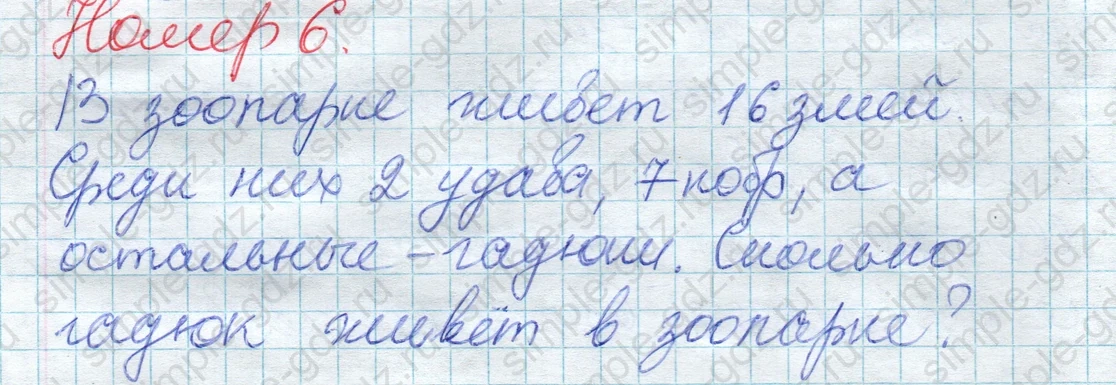 Номер 6.
В зоопарке живет 16 змей.
Среди них 2 удава, 7 кобр, а
остальные – гадюки. Сколько
гадюк живёт в зоопарке?
simple-gdz.ru